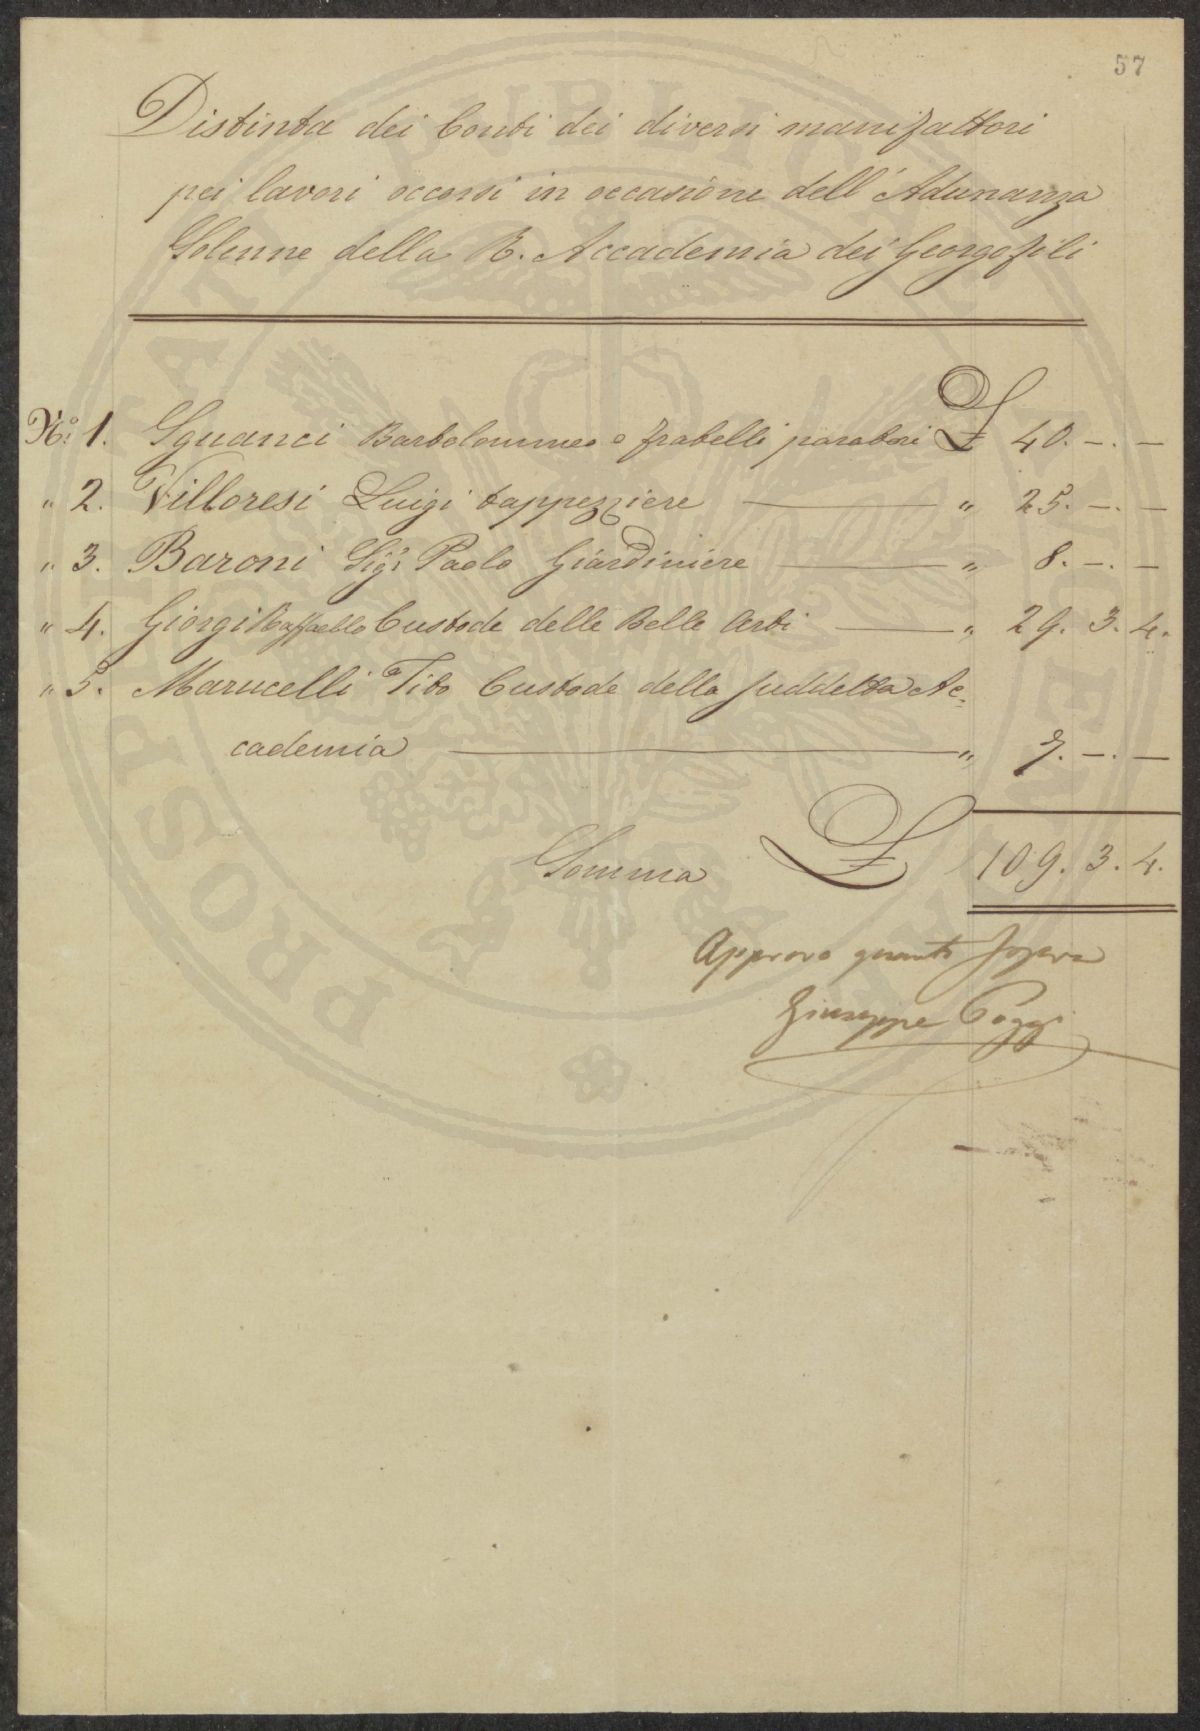 57
Distinta dei Conti dei diversi manifattori
pei lavori occorsi in occasione dell'Adunanza
Solenne della R. Accademia dei Georgofili
N.° 1. Sguanci Bartolommeo e fratelli paratori £ 40. -. -
" 2. Villoresi Luigi tappezziere " 25. -. -
" 3. Baroni Sig.r Paolo Giardiniere " 8. -. -
" 4. Giorgi Raffaello Custode delle Belle Arti " 29. 3. 4.
" 5. Marucelli Tito Custode della suddetta Ac=
cademia " 7. -. -
Somma £ 109. 3. 4.
Approvo quanto sopra
Giuseppe Poggi
PROSPERITATI PUBLICAE AUGENDAE